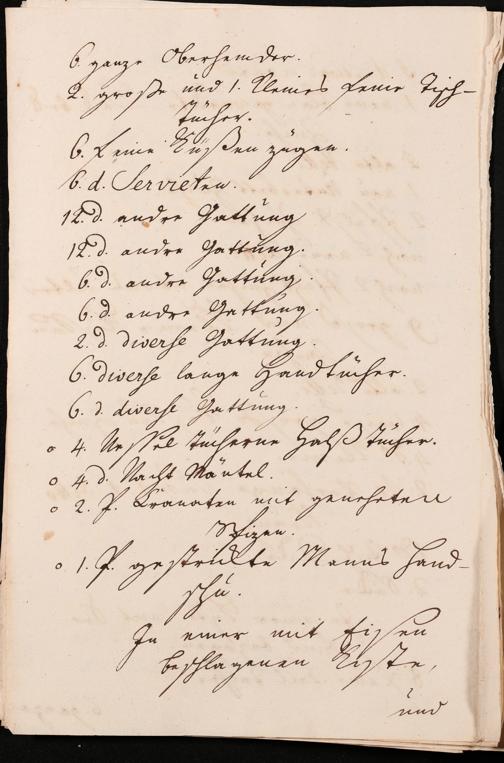 6. ganze Oberhemder.
2. große und 1. kleines feine Tisch-
tücher.
6. feine Küßen zügen.
6. d. Servieten.
12. d. andre Gattung
12. d. andre Gattung.
6. d. andre Gattung
6. d. andre Gattung.
2. d. diverse Gattung.
6. diverse lange Handtücher.
6. d. diverse Gattung.
o 4. Nessel tücherne Halß tücher.
o 4. d. Nacht Mäntel.
o 2. P. mit geneheten
Spizen.
o 1. P. gestrickte Manns Hand-
schu.
In einer mit Eisen
beschlagenen Kiste,
und